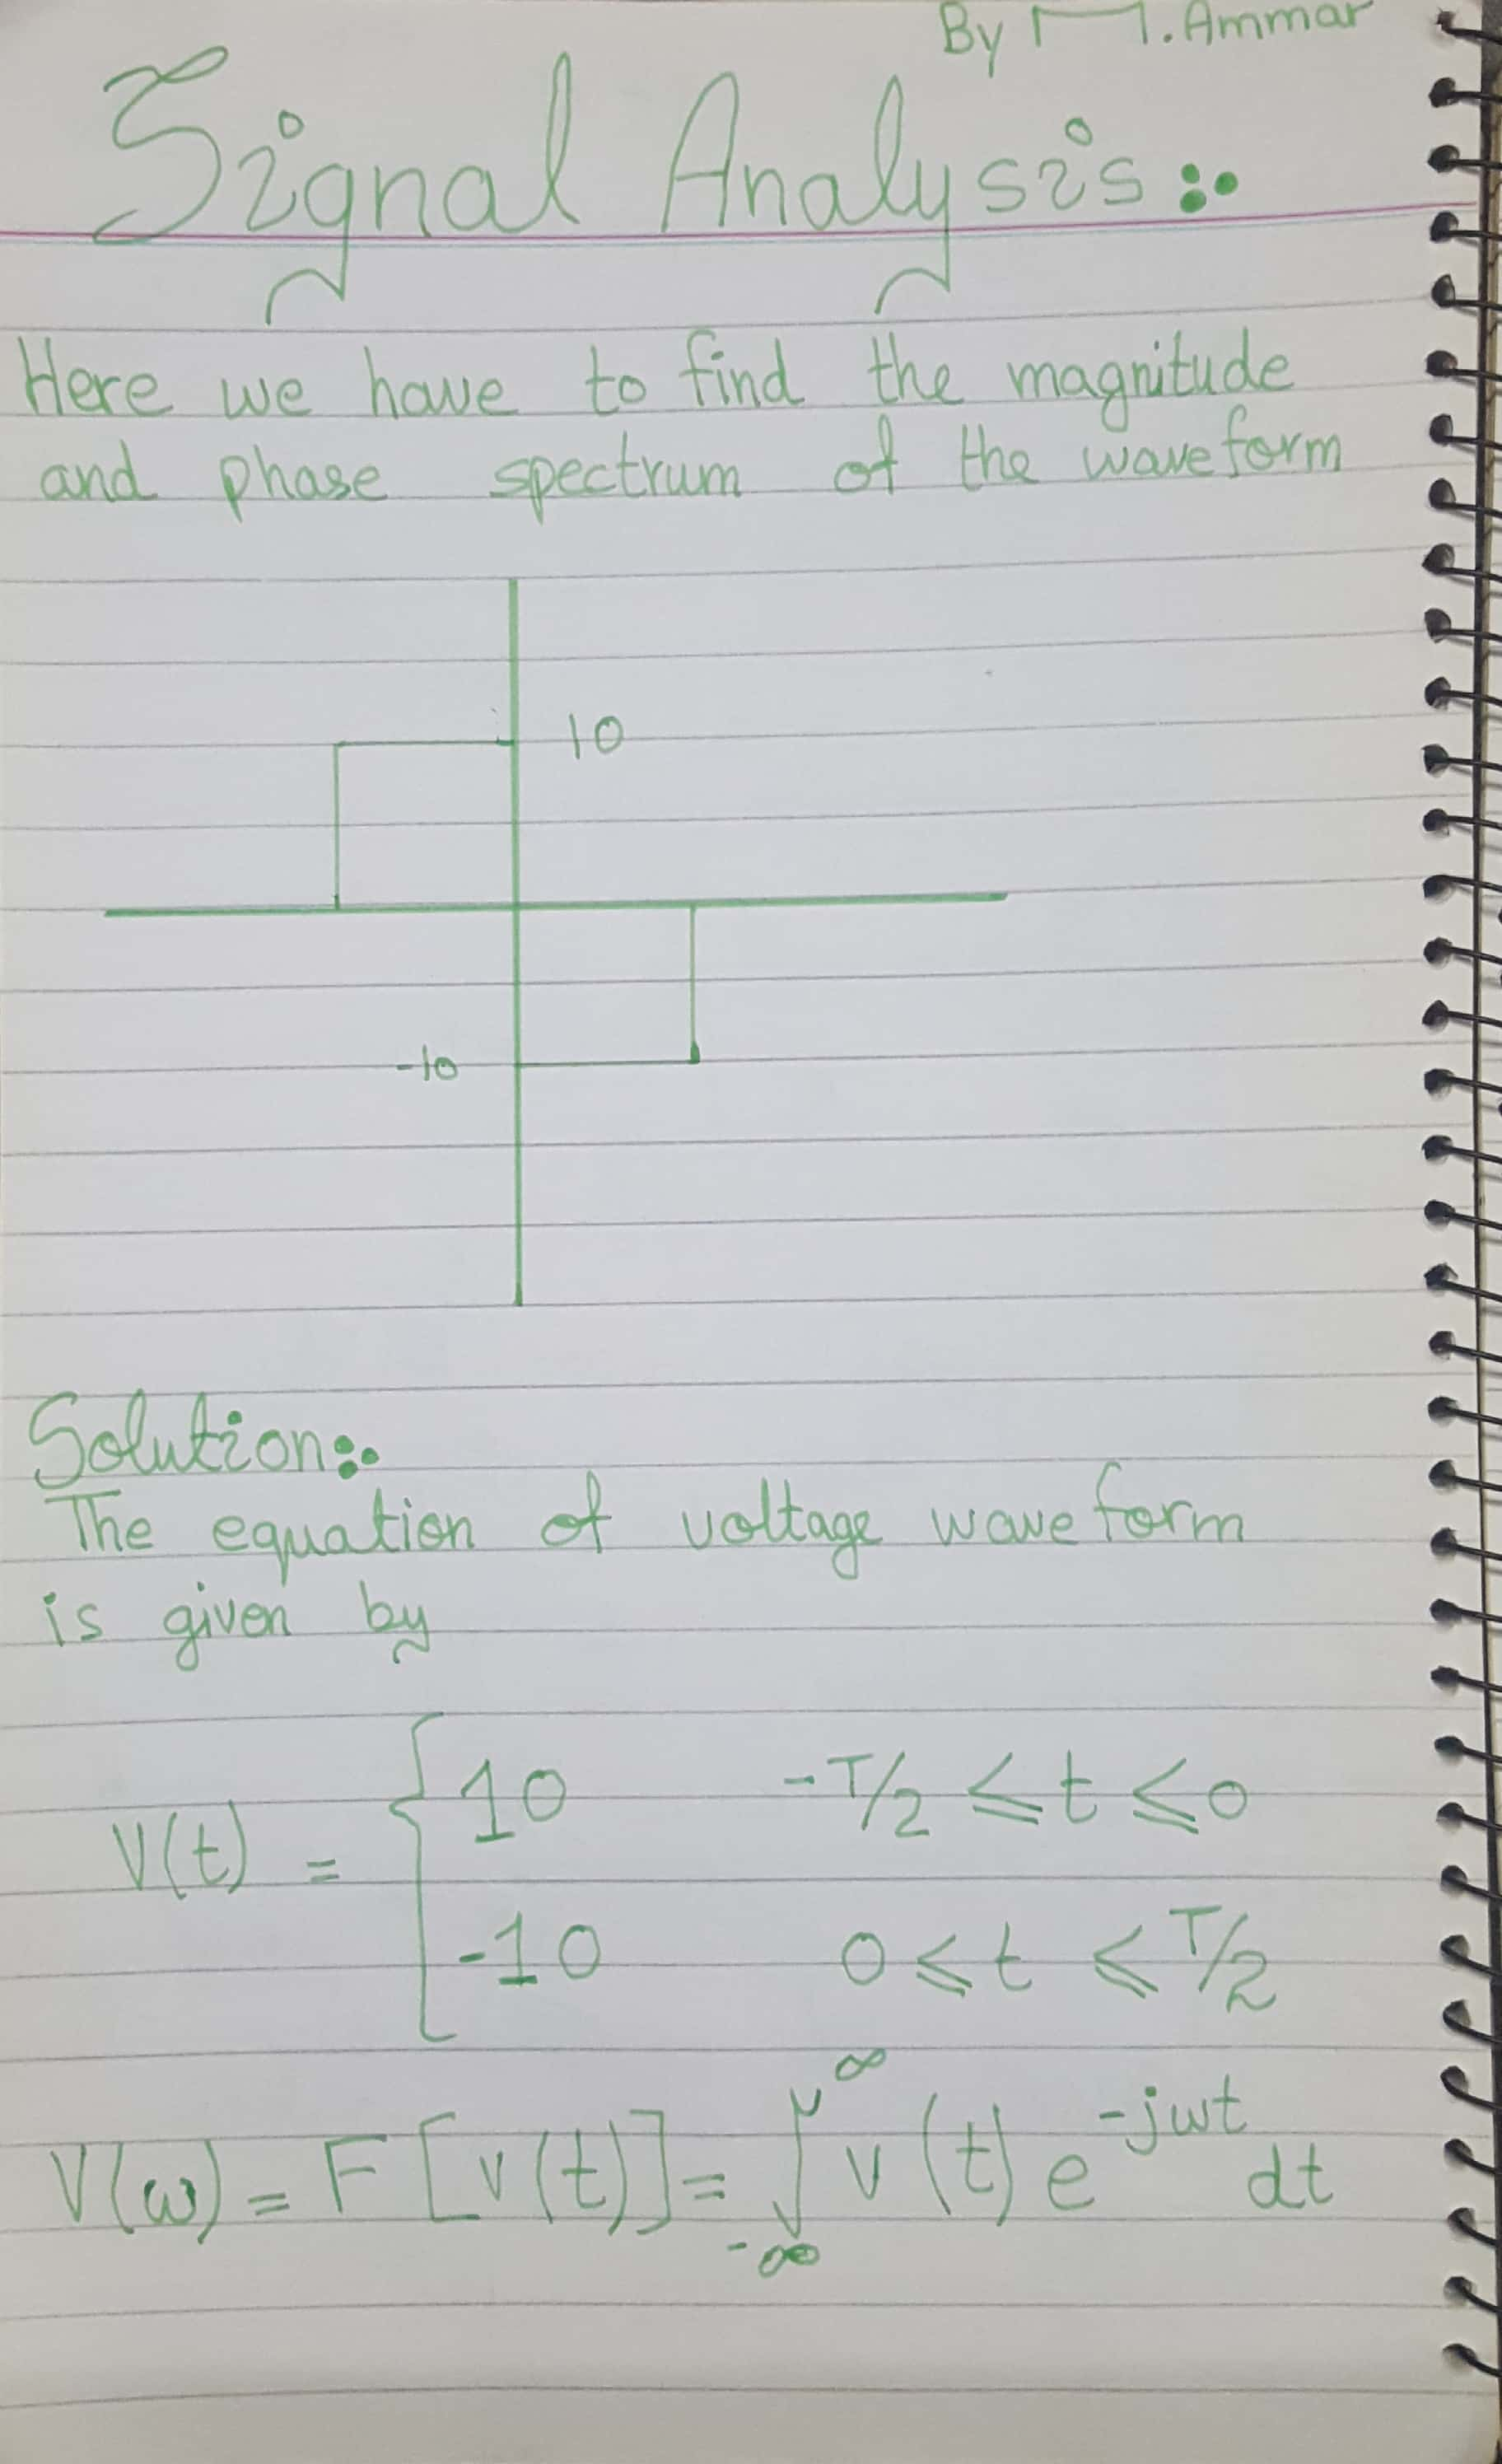 By M. Ammar
Signal Analysis:.
Here we have to find the magnitude
and phase spectrum of the waveform
10
-10
Solution:.
The equation of voltage waveform
is given by
V(t) = { 10 -T/2 ≤ t ≤ 0
-10 0 ≤ t ≤ T/2
V(ω) = F [v(t)] = ∫_{-∞}^{∞} v(t) e^{-jwt} dt